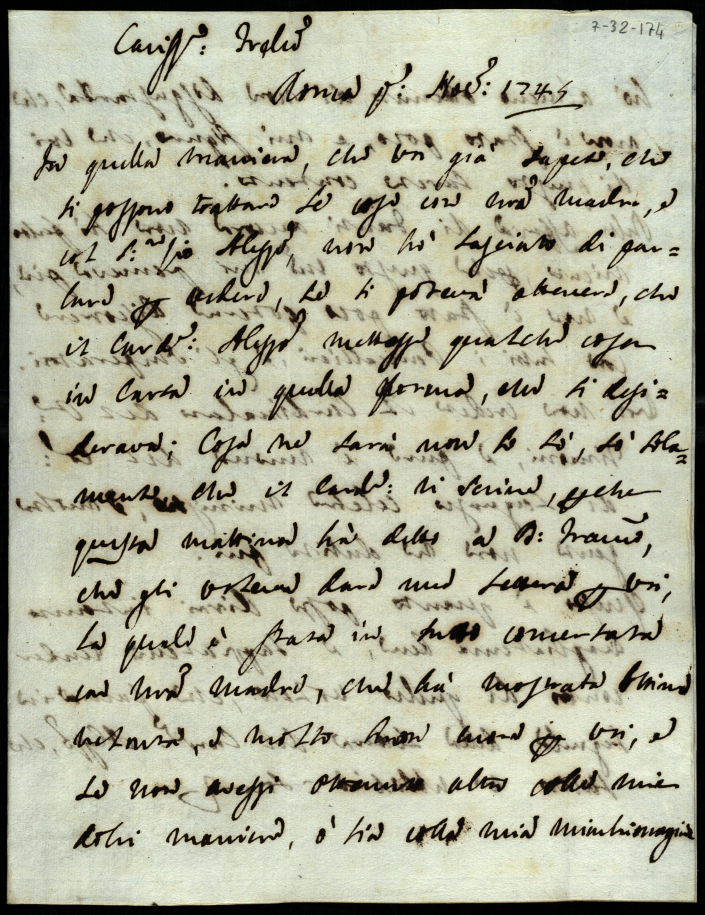 7-32-174
Cariss.º: Fratello
Roma p.º: Nov.e: 1745
In quella maniera, che voi già sapete, che
si possono trattare le cose con nr̃a madre, e
col S.r Zio Aless.º, non hò lasciato di par=
lare p vedere, se si poteva ottenere, che
il Card.e: Aless.º mettesse qualche cosa
in Carta in quella forma, che si desi=
derava; Cosa ne sarà non lo sò, sò sola=
mente, che il Card.e: vi scrive, perche
questa mattina hà detto a D: Franc.º,
che gli voleva dare una lettera p voi,
la quale è stata in tutto concertata
con nr̃a madre, che hà mostrata buona
volontà, e molto buon cuore p voi, e
se non avessi ottenuto altro colle mie
dolci maniere, ò sia colla mia minchionagine